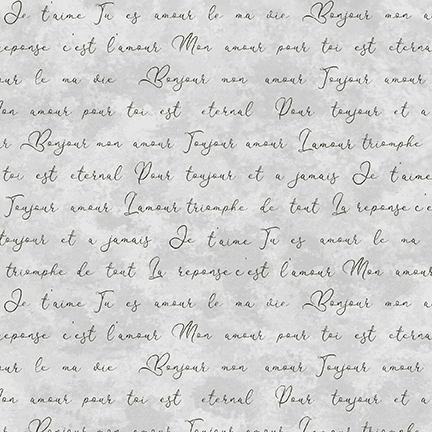 Je t'aime Tu es amour le ma vie Bonjour mon a
reponse c'est l'amour Mon amour pour toi est eterna
ur le ma vie Bonjour mon amour Toujour amour
on amour pour toi est eternal Pour toujour et a
r Bonjour mon amour Toujour amour L'amour triomphe
toi est eternal Pour toujour et a jamais Je t'aime
Toujour amour L'amour triomphe de tout La reponse c'e
toujour et a jamais Je t'aime Tu es amour le ma
triomphe de tout La reponse c'est l'amour Mon amour
Je t'aime Tu es amour le ma vie Bonjour mon a
reponse c'est l'amour Mon amour pour toi est eterna
ur le ma vie Bonjour mon amour Toujour amour
on amour pour toi est eternal Pour toujour et a
r Bonjour mon amour Toujour amour L'amour triomphe